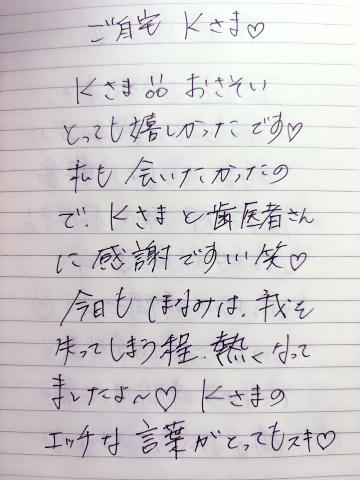 ご自宅 Kさま♡
Kさま!! おさそい
とっても嬉しかったです♡
私も会いたかったの
で、Kさまと歯医者さん
に感謝です!!笑♡
今日もほなみは、我を
失ってしまう程、熱くなって
ましたよ〜♡ Kさまの
エッチな言葉がとってもスキ♡